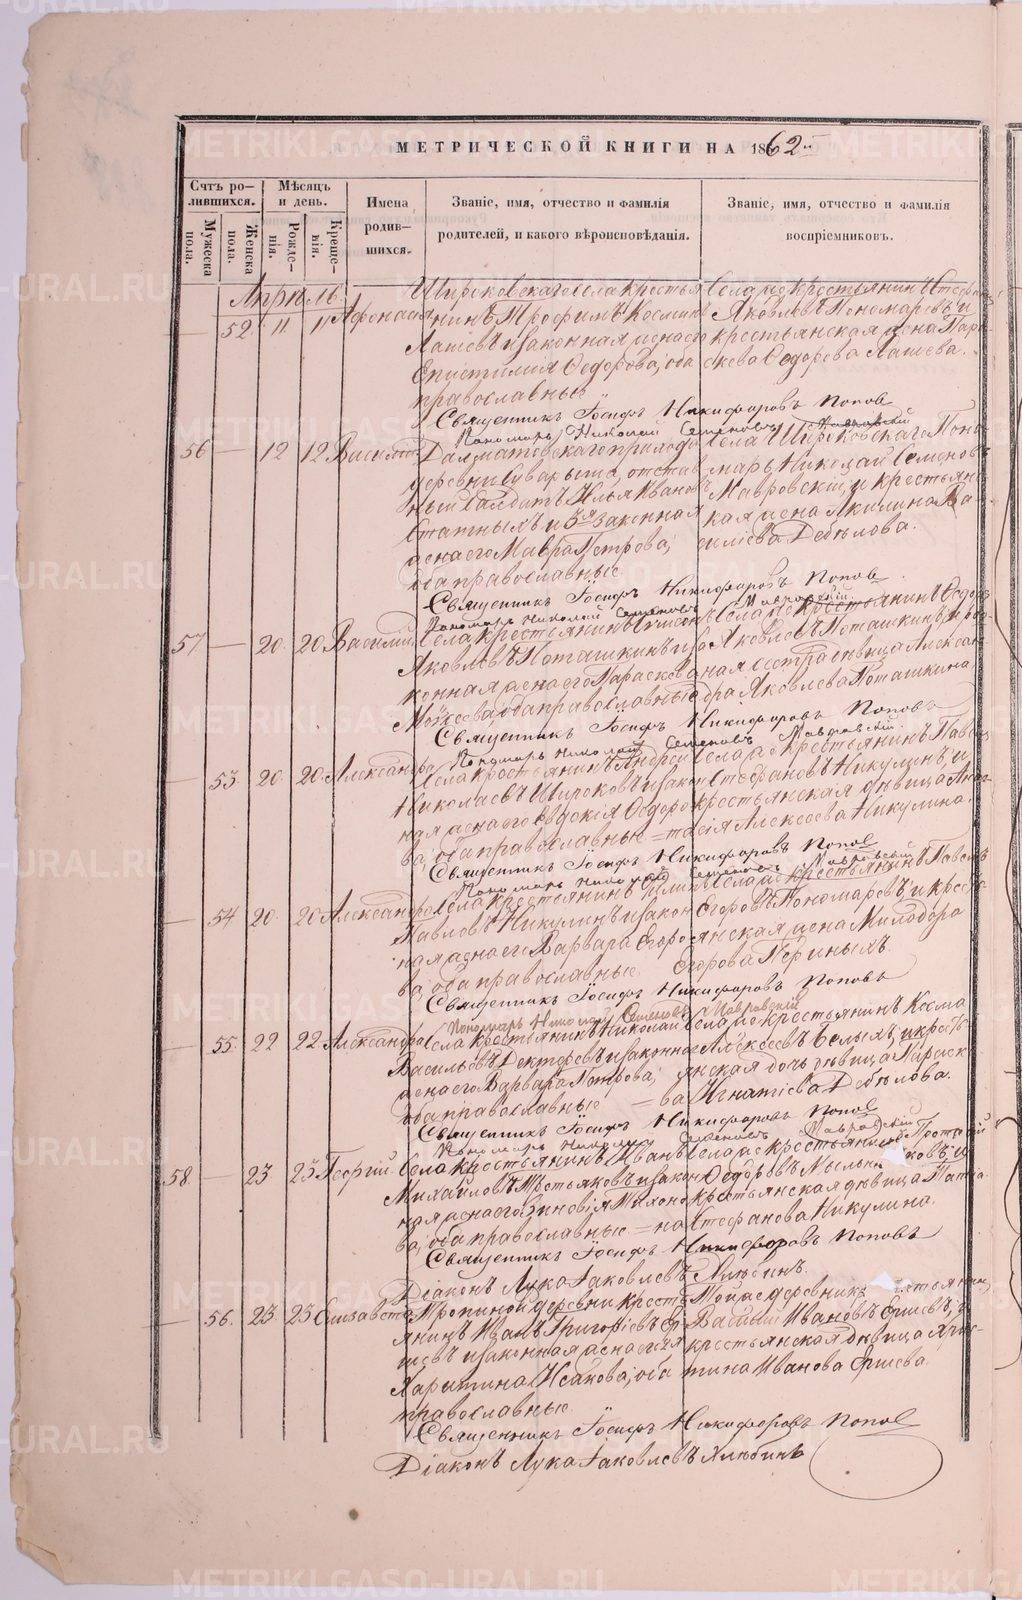 МЕТРИЧЕСКОЙ КНИГИ НА 1862 г.
Счтъ ро-
лившихся.
Мѣсяцъ
и день.
Имена
родив-
шихся.
Званіе, имя, отчество и фамилія
родителей, и какого вѣроисповѣданія.
Званіе, имя, отчество и фамилія
воспріемниковъ.
Мужеска
пола.
Женска
пола.
Рожде-
нія.
Креще-
нія.
Апрѣль
52 11 11 Афанасія
Широковскаго села крестья
нинъ Трофимъ Космин
Лашевъ и законная жена его
Епистимія Ѳедорова, оба
православные
Села же крестьянинъ Стефанъ
Яковлевъ Пономаревъ, и
крестьянская жена Пара
скева Ѳедорова Лашева.
Священникъ Іосифъ Никифоровъ Попов
Пономарь Николай Семеновъ Мавровскій
56 — 12 12 Василій
Далматовскаго прихода
деревни Суварыша, отстав
ный Салдатъ Илья Иванов
Статныхъ и 3я законная
жена его Мавра Петрова,
оба православные
Села Широковскаго Поно
марь Николай Семеновъ
Мавровскій, и крестьянс
кая жена Акилина Ва
силіева Дебѣлова.
Священникъ Іосифъ Никифоровъ Попов
Пономарь Николай Семеновъ Мавровскій
57 — 20 20 Василій
Села крестьянинъ
Яковлевъ Поташкинъ и за
конная жена его Параскева
Моисеева, оба православные
Села же крестьянинъ Ѳедоръ
Яковлевъ Поташкинъ, и род
ная сестра дѣвица Алексан
дра Яковлева Поташкина
Священникъ Іосифъ Никифоровъ Попов
Пономарь Николай Семеновъ Мавровскій
— 53 20 20 Александра
Села крестьянинъ Андрей
Николаевъ Широковъ и закон
ная жена его Евдокія Ѳедоро
ва, оба православные
Села же крестьянинъ Павелъ
Стефановъ Никулинъ, и
крестьянская дѣвица Анас
тасія Алексеева Никулина.
Священникъ Іосифъ Никифоровъ Попов
Пономарь Николай Семеновъ Мавровскій
— 54 20 20 Александра
Села крестьянинъ Филипъ
Павловъ Никулинъ и закон
ная жена его Варвара Егоро
ва, оба православные
Села же крестьянинъ Павелъ
Егоровъ Пономаревъ, и кресть
янская жена Милодора
Егорова Периныхъ.
Священникъ Іосифъ Никифоровъ Поповъ
Пономарь Николай Семеновъ Мавровскій
— 55 22 22 Александра
Села крестьянинъ Николай
Васильевъ Дектяревъ и законная
жена его Варвара Петрова,
оба православные
Села же крестьянинъ Косма
Алексеевъ Белыхъ, и кресть
янская дочь дѣвица Параске
ва Игнатіева Дебѣлова.
Священникъ Іосифъ Никифоровъ Попов
Пономарь Николай Семеновъ Мавровскій
58 — 23 23 Георгій
Села крестьянинъ Иванъ
Михайловъ Третьяковъ и закон
ная жена его Зиновія Тихоно
ва, оба православные
Села же крестьянинъ
Ѳедоровъ и
крестьянская дѣвица Татіа
на Стефанова Никулина.
Священникъ Іосифъ Никифоровъ Поповъ
Діаконъ Лука Іаковлевъ Хлюбинъ
— 56 23 23 Елизавета
Тропиной деревни кресть
янинъ Иванъ Григоріевъ Ер
шевъ и законная жена его
Харитина Исакова, оба
православные
Той же деревни
Василій Ивановъ Ершевъ, и
крестьянская дѣвица Хрис
тина Иванова Ершева.
Священникъ Іосифъ Никифоровъ Попов
Діаконъ Лука Іаковлевъ Хлюбинъ
METRIKI.GASO-URAL.RU